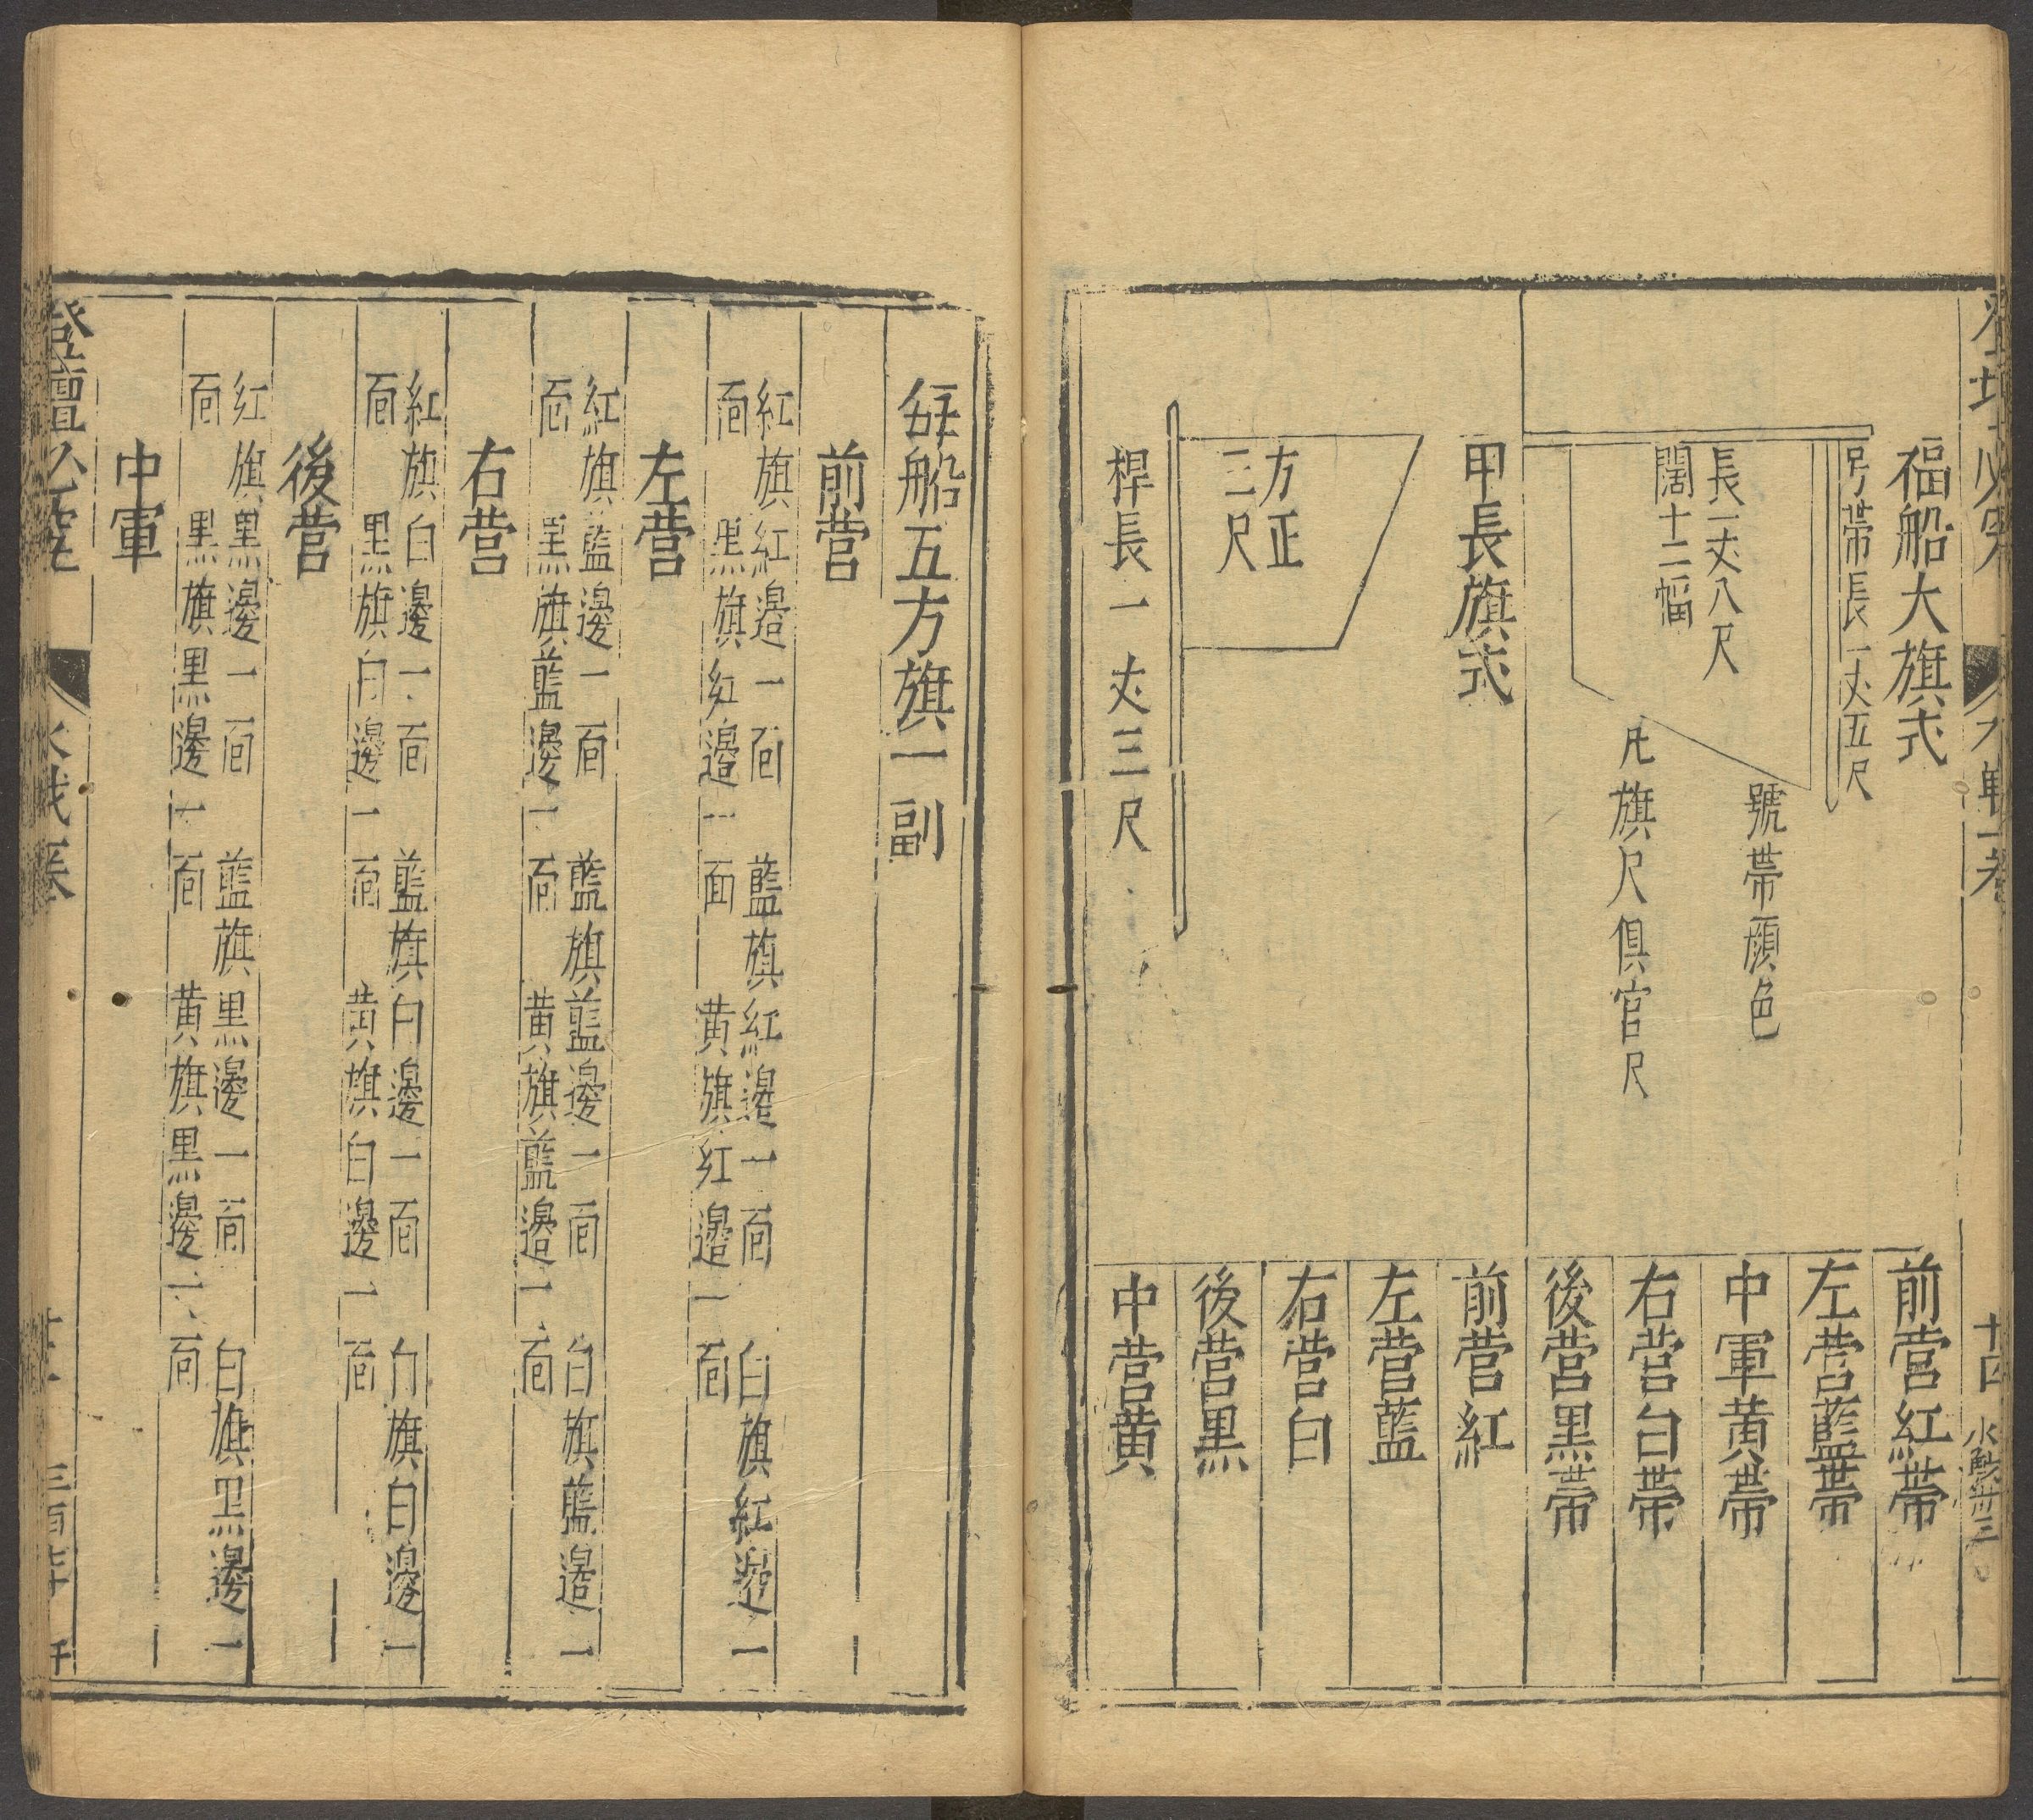 福船大旗式
号帶長一丈五尺
長一丈八尺
闊十二幅
號帶顏色
凡旗尺俱官尺
前营紅帶
左营藍帶
中軍黃帶
右营白帶
後营黑帶
甲長旗式
方正
三尺
桿長一丈三尺
前营紅
左营藍
右营白
後营黑
中营黃
每船五方旗一副
前营
紅旗紅邊一面 藍旗紅邊一面 白旗紅邊一
面 黑旗紅邊一面 黃旗紅邊一面
左营
紅旗藍邊一面 藍旗藍邊一面 白旗藍邊一
面 黑旗藍邊一面 黃旗藍邊一面
右营
紅旗白邊一面 藍旗白邊一面 白旗白邊一
面 黑旗白邊一面 黃旗白邊一面
後营
紅旗黑邊一面 藍旗黑邊一面 白旗黑邊一
面 黑旗黑邊一面 黃旗黑邊一面
中軍
登壇必究